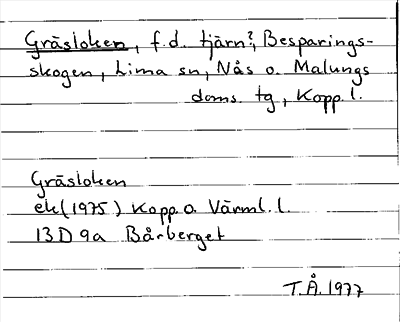 Gräsloken, f.d. tjärn?, Besparings-
skogen, Lima sn, Nås o. Malungs
doms. tg, Kopp. l.
Gräsloken
ek (1975) Kopp. o. Värml. l.
13D 9a Bårberget
T.Å. 1977